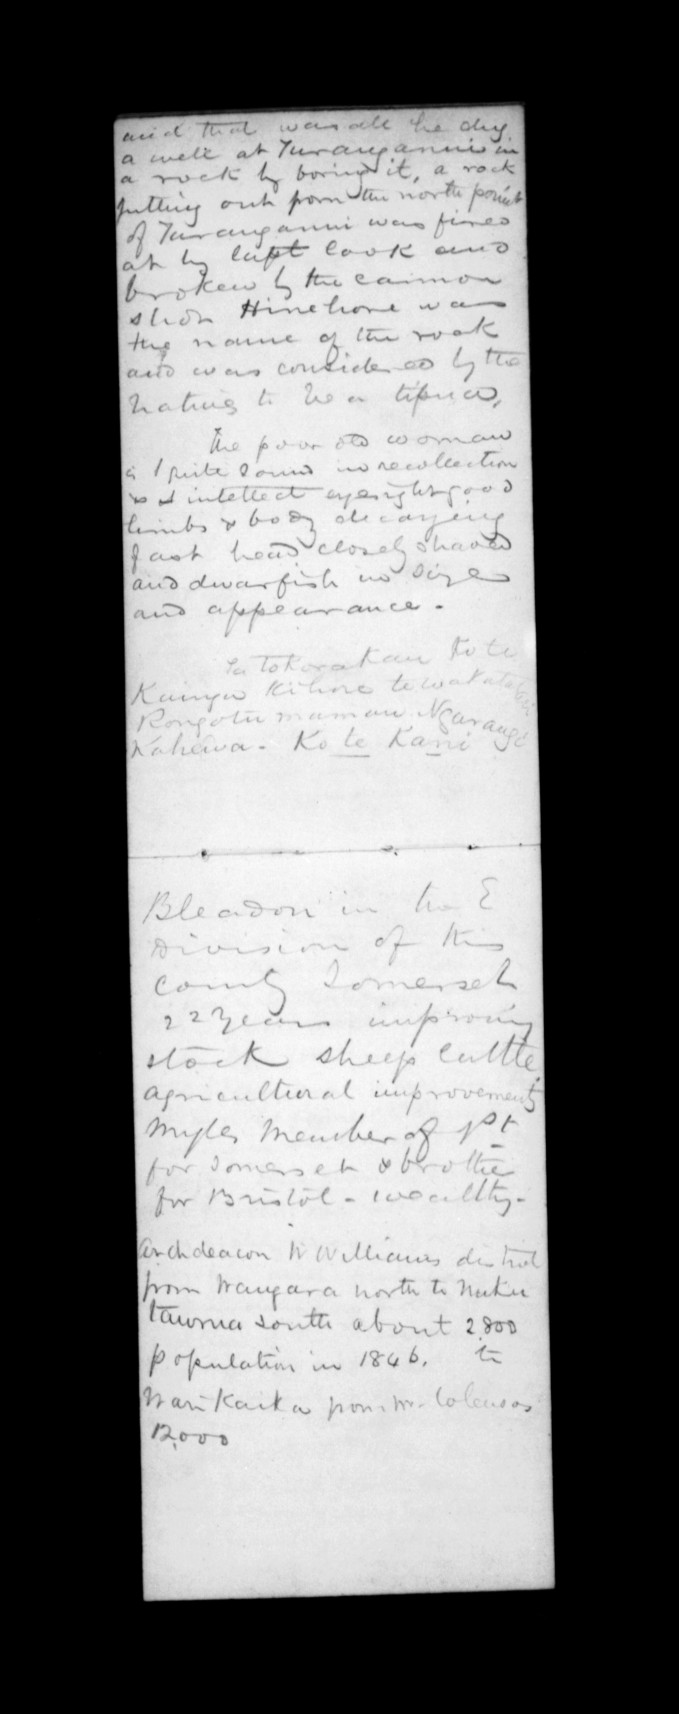 and that was all he dug
a well at Turanganui in
a rock by boring it, a rock
jutting out from the north point
of Turanganui was fired
at by Capt Cook and
broken by the cannon
shot Hinehore was
the name of the rock
and was considered by the
natives to be a tipua,
The poor old woman
is quite sound in recollection
& intellect eyesight good
limbs & body decaying
fast head closely shaved
and dwarfish in size
and appearance.
Ko te
Kainga Kihore te
Rongotu mamau Ngarangi
Kahewa - Ko te Kani
Bleadon in the E
Division of the
county Somerset
22 years improving
stock sheep Cattle
agricultural improvements
Myles Member of Pt
for Somerset & brother
for Bristol - wealthy -
Archdeacon W Williams district
from Wangara north to Nuku
taurua south about 2.800
population in 1846. to
from Mr. Colensos
12,000